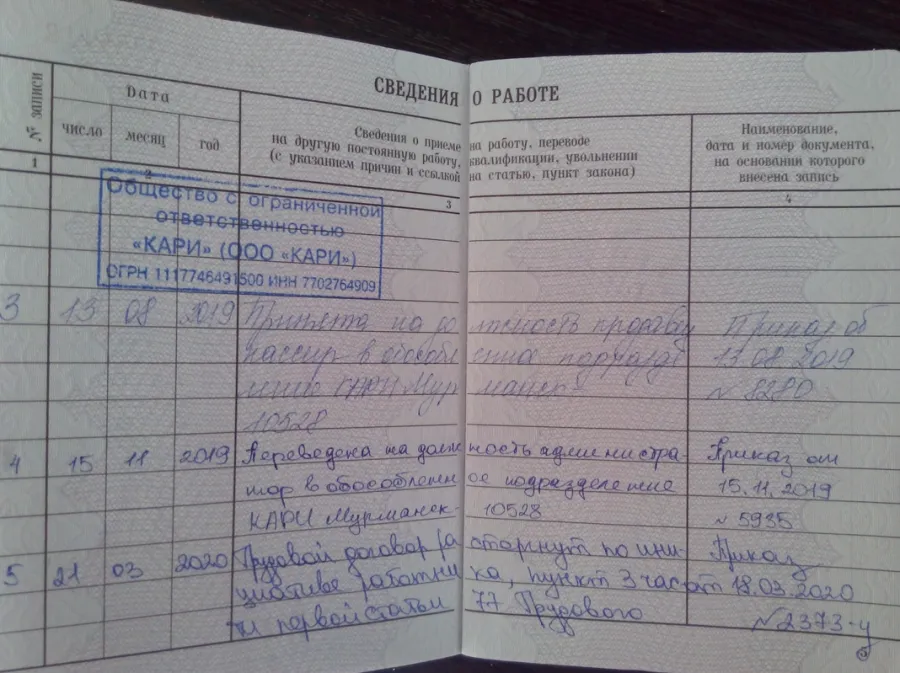 СВЕДЕНИЯ О РАБОТЕ
№ записи
Дата
число
месяц
год
Сведения о приеме на работу, переводе
на другую постоянную работу, квалификации, увольнении
(с указанием причин и ссылкой на статью, пункт закона)
Наименование,
дата и номер документа,
на основании которого
внесена запись
1
2
3
4
Общество с ограниченной
ответственностью
«КАРИ» (ООО «КАРИ»)
ОГРН 1117746491500 ИНН 7702764909
3 13 08 2019 Принята на должность продавец Приказ об
кассир в обособленное подразде 13.08.2019
ление КАРИ Мурманск- № 8280
10528
4 15 11 2019 Переведена на должность администра- Приказ от
тор в обособленное подразделение 15.11.2019
КАРИ Мурманск-10528 № 5935
5 21 03 2020 Трудовой договор расторгнут по ини- Приказ
циативе работника, пункт 3 час от 18.03.2020
ти первой статьи 77 Трудового №2373-у